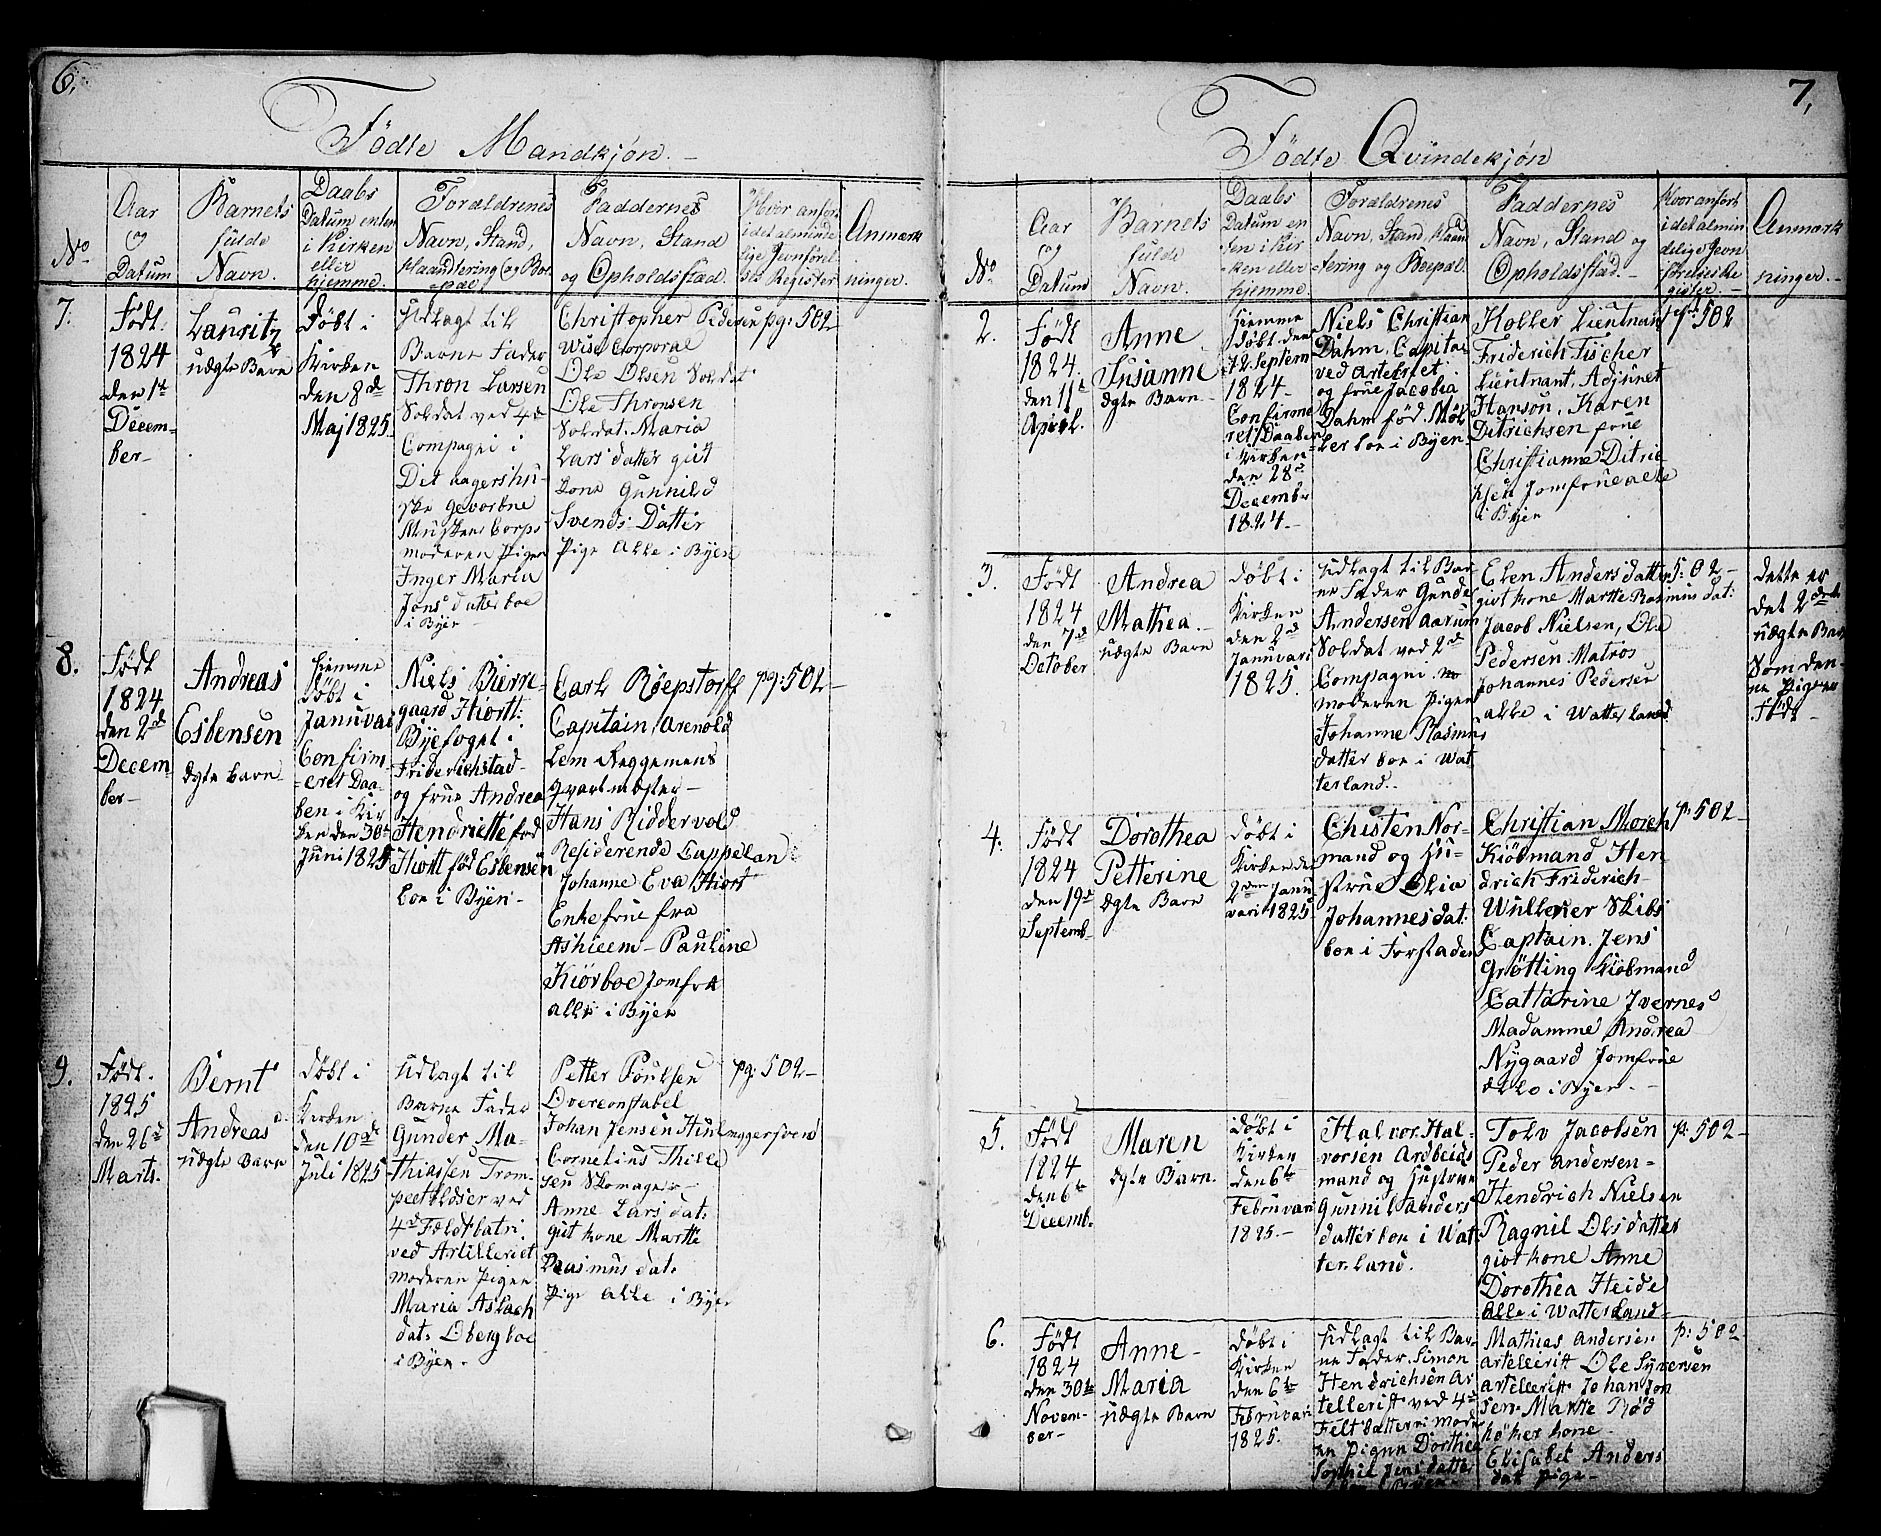 6.
Fødte Mandkjøn.
No
Aar
og
Datum
Barnets
fulde
Navn.
Daabs
Datum enten
i Kirken
eller
hjemme.
Forældrenes
Navn, Stand,
Haandtering og Boe-
pæl
Faddernes
Navn, Stand
og Opholdsstad.
Hvor anført
i det alminde
lige Jevnførel
ses Register
Anmærk
ninger.
7.
Født.
1824
den 1st
Decem-
ber
Lauritz
uægte Barn
Døbt i
Kirken
den 8de
Maj 1825.
Udlagt til
Barne Fader
Thron Larsen
Soldat ved 4de
Compagni i
Det aagershu-
ske gevorbne
Musketer Corps
moderen Pigen
Inger Maria
Jonsdatter boe
i Byen
Christopher Pedersen
Wise Corporal
Ole Olsen Soldat
Ole Thronsen
Soldat. Maria
Larsdatter gift
Kone Gunnild
Svends Datter
Pige alle i Byen
pg: 502
8.
Født
1824
den 2d
Decem-
ber
Andreas
Esbensen
ægte barn
hiemme
Døbt i
Januvar
Confirm-
eret Daa-
ben i Kir
ken den 30te
Juni 1825
Niels Bierre-
gaard Hiort
Byefoget i
Friderichstad
og frue Andrea
Hendriette fød
Hiort fød Esbensen
boe i Byen
Carl Röepstorff
Capitain, Arenold
Lem Reggements
Qvarteermester
Hans Riddervold
Residerende Cappelan
Johanne Eva Hiort
Enkefrue fra
Ashieem Pauline
Kiørboe Jomfru
alle i Byen
pg: 502
9.
Født.
1825
den 26d
Marts.
Bernt
Andreas
uægte Barn
Døbt i
Kirken
den 10de
Juli 1825
Udlagt til
Barne Fader
Gunder Ma-
thiassen Trom-
peetblæser ved
4d Feldtbatri
ved Artilleriet
moderen Pigen
Maria Aslach
dat: Oberg boe
i Byen.
Petter Poulsen
Overconstabel
Johan Jensen Huulmggersvend
Cornelius Thille
sen Skomager
Anne Lars dat:
gift kone Martte
Rasmus dat:
Pige alle i Byen
pg: 502
7,
Fødte Qvindekjøn
No
Aar
og
Datum
Barnets
fulde
Navn.
Daabs
Datum en
ten i Kir
ken eller
hjemme
Forældrenes
Navn, Stand, Haan
tering og Boepæl.
Faddernes
Navn, Stand og
Opholdsstad.
Hvor anført
i det almin
delige Jevn
førelse Re
gister.
Anmærk
ninger.
2.
Født
1824.
den 11t
April.
Anne
Susanne
ægte Barn
hiemme
døbt den
12. Septem
1824
Confirme
ret Daaben
i Kirken
den 28de
Decembr
1824.
Niels Christian
Dahm, Capitai
ved Arteriet
og frue Jacobia
Dahm fød. Møl
ler boe i Byen
Koller Lieutnant
Friderich Fischer
Lieutnant, Adjunct
Hanson, Karen
Ditrichsen frue
Christianne Ditric
hsen Jomfrue alle
i Byen
p: 502
3.
Født
1824
den 7d
October
Andrea
Mathea.
uægte Barn
Døbt i
Kirken
den 2d
Januvari
1825.
Udlagt til Bar
ne Fader Gunde
Andersen Aarum
Soldat ved 2d
Compagni
moderen Pigen
Johanne Rasmus
datter boe i Wat
terland.
Elen Anders datter
givt kone Martte Rasmus dat:
Jacob Nielsen, Ole
Pedersen Matros
Johannes Pedersen
alle i Watterland
5:02
Dette er
det 2det
uægte Barn
Som den-
ne Pige er
Født
4.
Født
1824
den 19d
Septemb
Dorothea
Petterine
ægte Barn
Døbt i
Kirken den
2den Janu-
vari 1825
Christen Nor-
mand og Hu-
strue Olia
Johannesdat:
boe i Forstaden
Christian Morch
Kiöbmand Hen
drich Friderich
Wüllener Skibs
Captain. Jens
Grötting Kiöbmand
Cattarine Ivernes
Madamme Andrea
Nygaard Jomfrue
alle i Byen.
p: 502
5.
Født
1824
den 6te
Decemb.
Maren
ægte Barn.
Døbt i
Kirken
den 6te
Februvari
1825.
Halvor Hal-
vorsen Ardbeids
mand og Hustrue
Gunnil Anders
datter boe i Wat
terland.
Tolv Jacobsen
Peder Andersen
Hendrich Nielsen
Ragnil Olsdatter
givt kone Anne
Dorothea Heide
alle i Watterland
p: 502
6.
Født
1824
den 30te
Novem-
ber
Anne
Maria
uægte Barn
Døbt i
Kirken
den 6te
Februvari
1825.
Udlagt til Bar-
ne Fader. Simon
Hendrichsen Ar
tellerist ved 4d
Felt batteri moder
en Pigen Dorthea
Sophie Jensdatter
Mathias Andersen
Artellerist Ole Syversen
Artellerist Johan Jon
sen. Martte Röd
høker kone.
Elisabet Anders
dat pige
p: 502